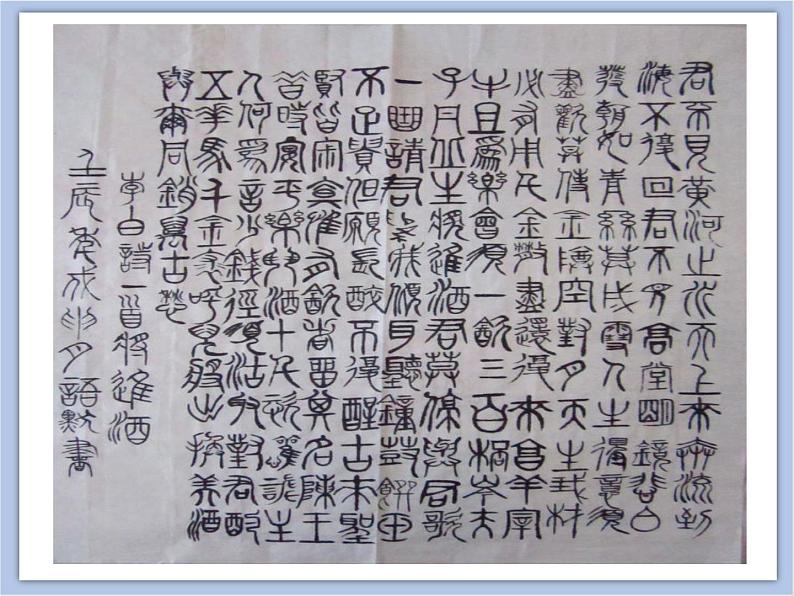 君不見黃河之水天上來奔流到
海不復回君不見高堂明鏡悲白
髮朝如青絲暮成雪人生得意須
盡歡莫使金樽空對月天生我材
必有用千金散盡還復來烹羊宰
牛且為樂會須一飲三百杯岑夫
子丹丘生將進酒君莫停與君歌
一曲請君為我傾耳聽鐘鼓饌玉
不足貴但願長醉不復醒古來聖
賢皆寂寞惟有飲者留其名陳王
昔時宴平樂斗酒十千恣歡謔主
人何為言少錢徑須沽取對君酌
五花馬千金裘呼兒將出換美酒
與爾同銷萬古愁
李白詩一首將進酒
壬辰年戌卯月語默書